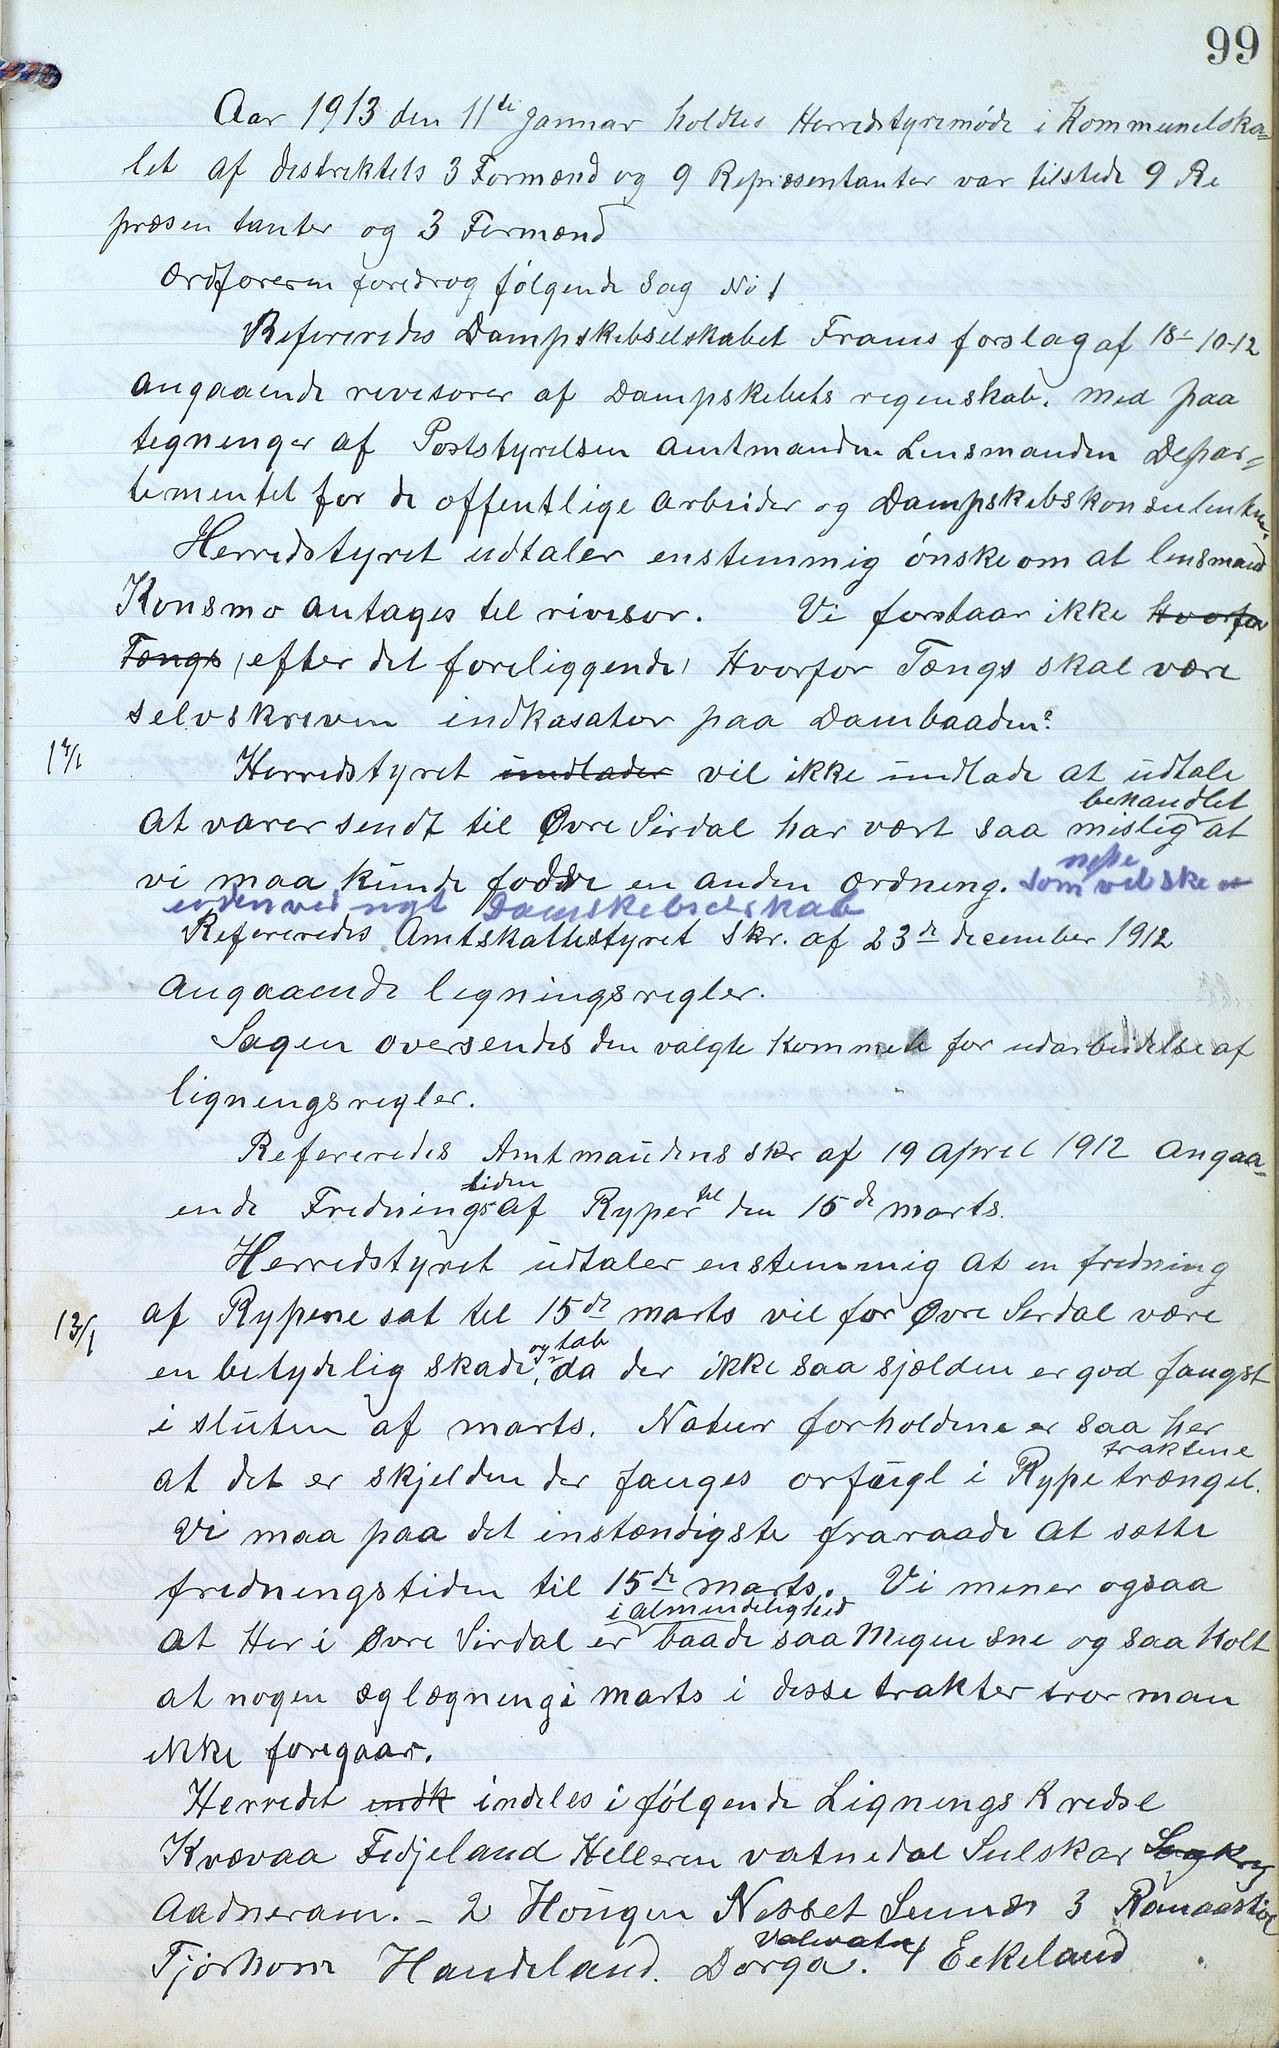 99
Aar 1913 den 11te Januar holdtes Herredstyremøde i Kommunelska=
let af destrektets 3 Formænd og 9 Repræsentanter var tilstede 9 Re
præsentanter og 3 Formænd
Ordføreren foredrog følgende Sag No 1
Refereredes Dampskibselskabet Frams forslag af 18-10-12
Angaaende revesorer af Dampskebets regenskab. med paa
tegnenger af Poststyrelsen Amtmanden Lensmanden Depar=
tementet for de offentlige Arbeider og Dampskebskonsulenten.
Herredstyret udtaler enstemmig ønske om at lensmand
Konsmo antages til revesor. Vi forstaar ikke hvorfor
Tængs (efter det foreliggende) Hvorfor Tængs skal være
selvskreven indkasator paa Dambaaden?
Herredstyret undlader vil ikke undlade at udtale
behandlet
at varer sendt til Øvre Sirdal har vært saa mislig at
vi maa kunde en anden Ordning. som vel ske
nyt Damskebselskab
Refereredes Amtskattestyret Skr. af 23de december 1912
Angaaende legningsregler.
Sagen oversendes den valgte Kommete for udarbeidelse af
ligningsregler.
Refereredes Amtmandens skr af 19 April 1912 Angaa=
tiden til
ende Frednings af Ryper den 15de marts.
Herredstyret udtaler enstemmig at en fredning
13/1 af Rypene sat til 15de marts vil for Øvre Sirdal være
og tab
en betydelig skade, da der ikke saa sjælden er god fangst
i sluten af marts. Natur forholdene er saa her
traktene
at det er skjelden der fanges orfugl i Rype trængel.
Vi maa paa det instændigste fraraade at sætte
fredningstiden til 15de marts. Vi mener ogsaa
i almindelighed
at Her i Øvre Sirdal er baade saa Megen sne og saa Kolt
at nogen æglægneng i marts i desse trakter tror man
ikke foregaar.
Herredet indk indeles i følgende Lignings Kredse
Kvævaa Fidjeland Helleren vatnedal Sulskar
Aadneram. - 2 Hougen Nesset Sunds 3
Valevatn
Tjørhom Handeland. Dorga. 4 Eekeland